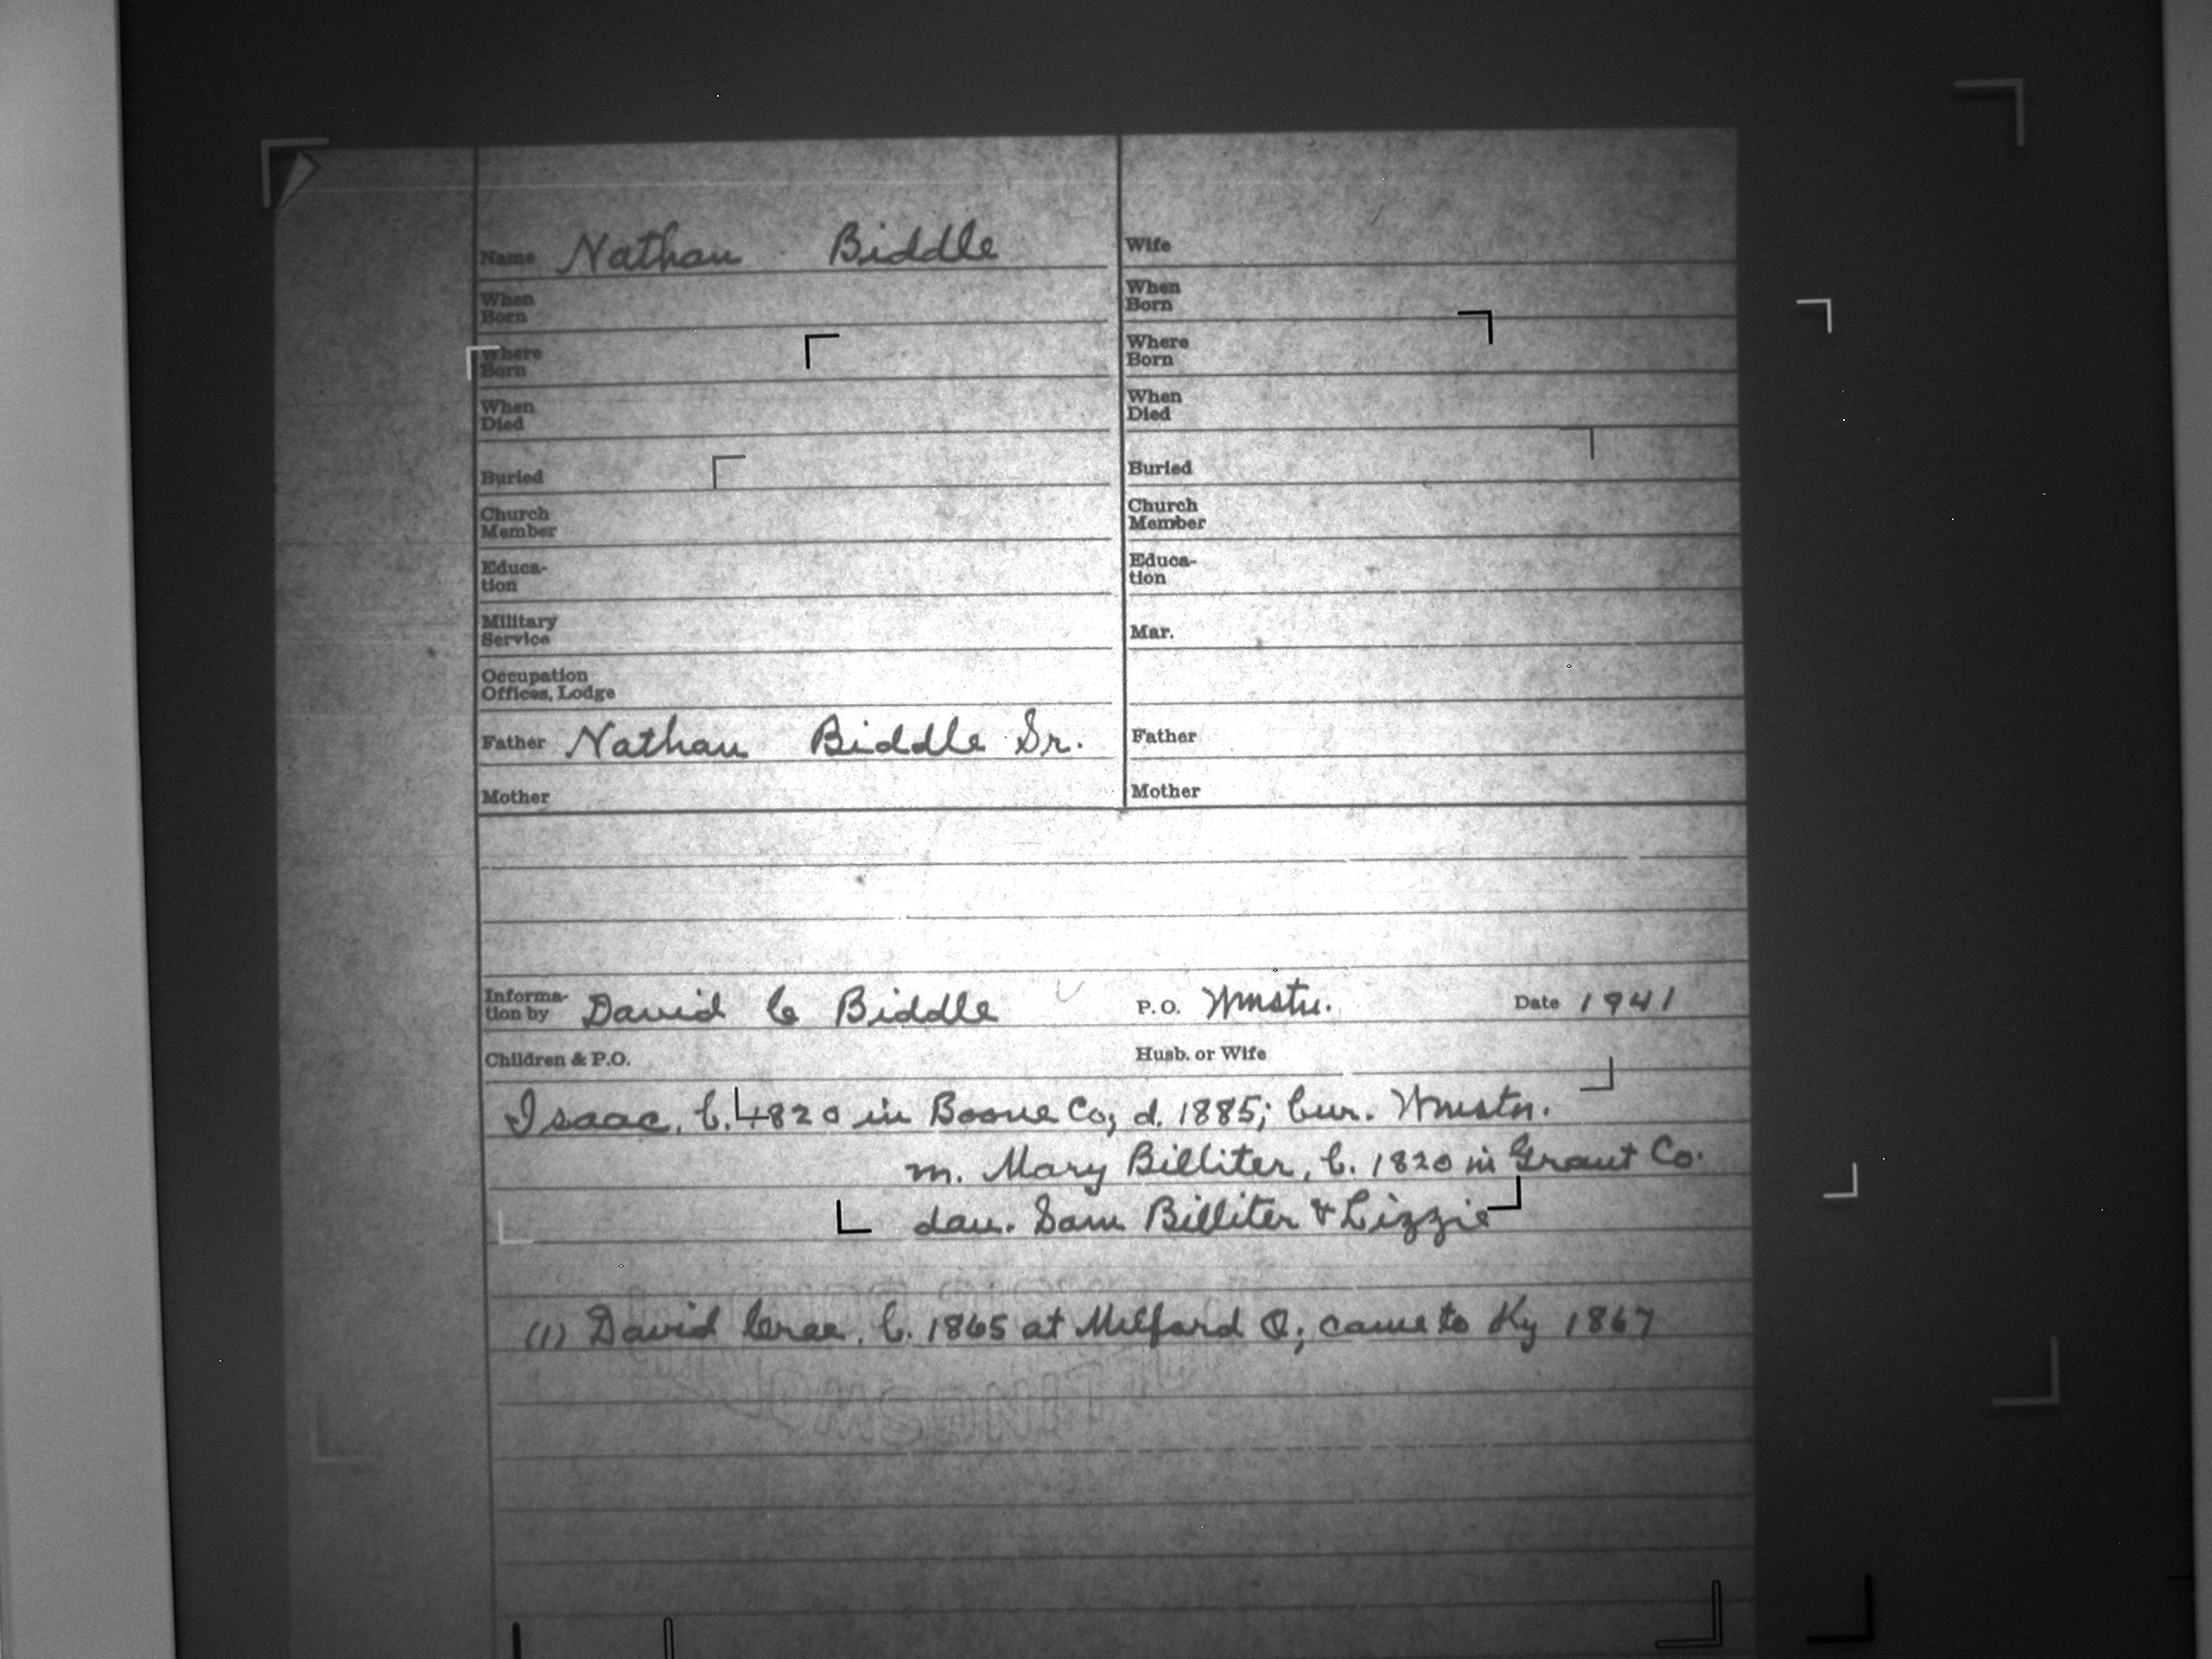 Name Nathan Biddle
Wife
When Born
When Born
Where Born
Where Born
When Died
When Died
Buried
Buried
Church Member
Church Member
Educa-tion
Educa-tion
Military Service
Mar.
Occupation Offices, Lodge
Father Nathan Biddle Sr.
Father
Mother
Mother
Informa-tion by David C Biddle P.O. Wmstn. Date 1941
Children & P.O. Husb. or Wife
Isaac, b. 1820 in Boone Co; d. 1885; bur. Wmstn.
m. Mary Billiter, b. 1820 in Grant Co.
dau. Sam Billiter & Lizzie
(1) David b. 1865 at Milford O; came to Ky 1867